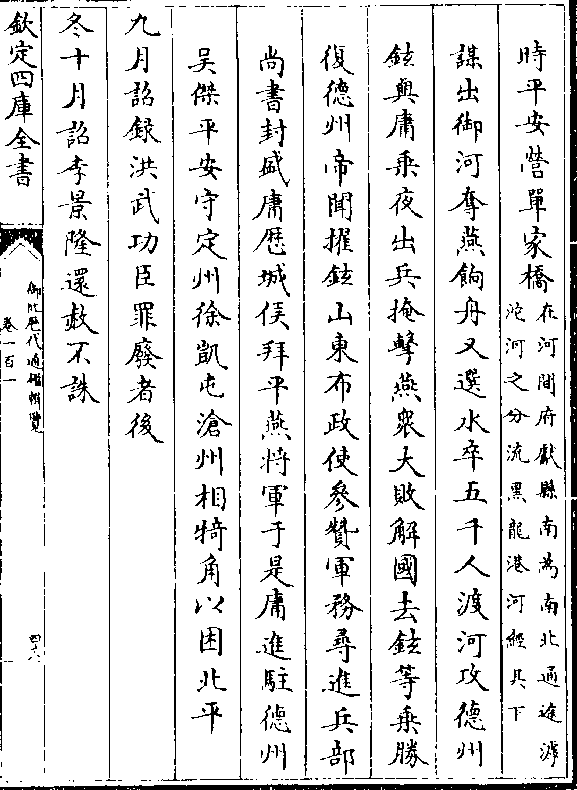 時平安營單家橋在河間府獻縣南為南北通途滹
沱河之分流黑龍港河經其下
謀出御河奪燕餉舟又選水卒五千人渡河攻德州
鉉與庸乗夜出兵掩擊燕衆大敗解圍去鉉等乗勝
復德州帝聞擢鉉山東布政使參贊軍務尋進兵部
尚書封盛庸歴城侯拜平燕將軍于是庸進駐德州
吳傑平安守定州徐凱屯滄州相犄角以困北平
九月詔録洪武功臣罪廢者後
冬十月詔李景隆還赦不誅
欽定四庫全書
御批歴代通鑑輯覽
卷一百一
四十八